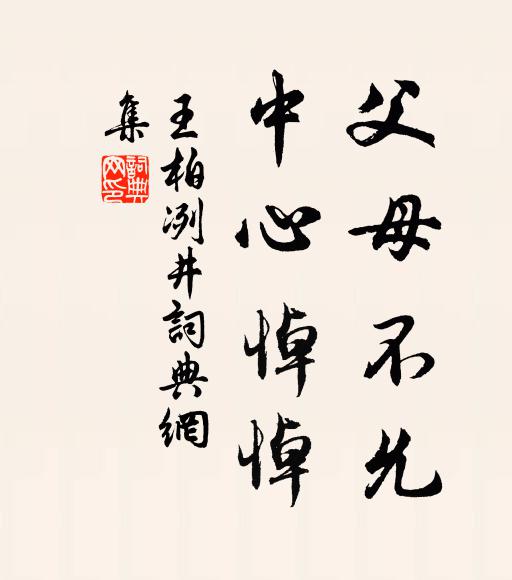 父母不允
中心悼悼
王柏冽井詞典網
集
詞典
网印